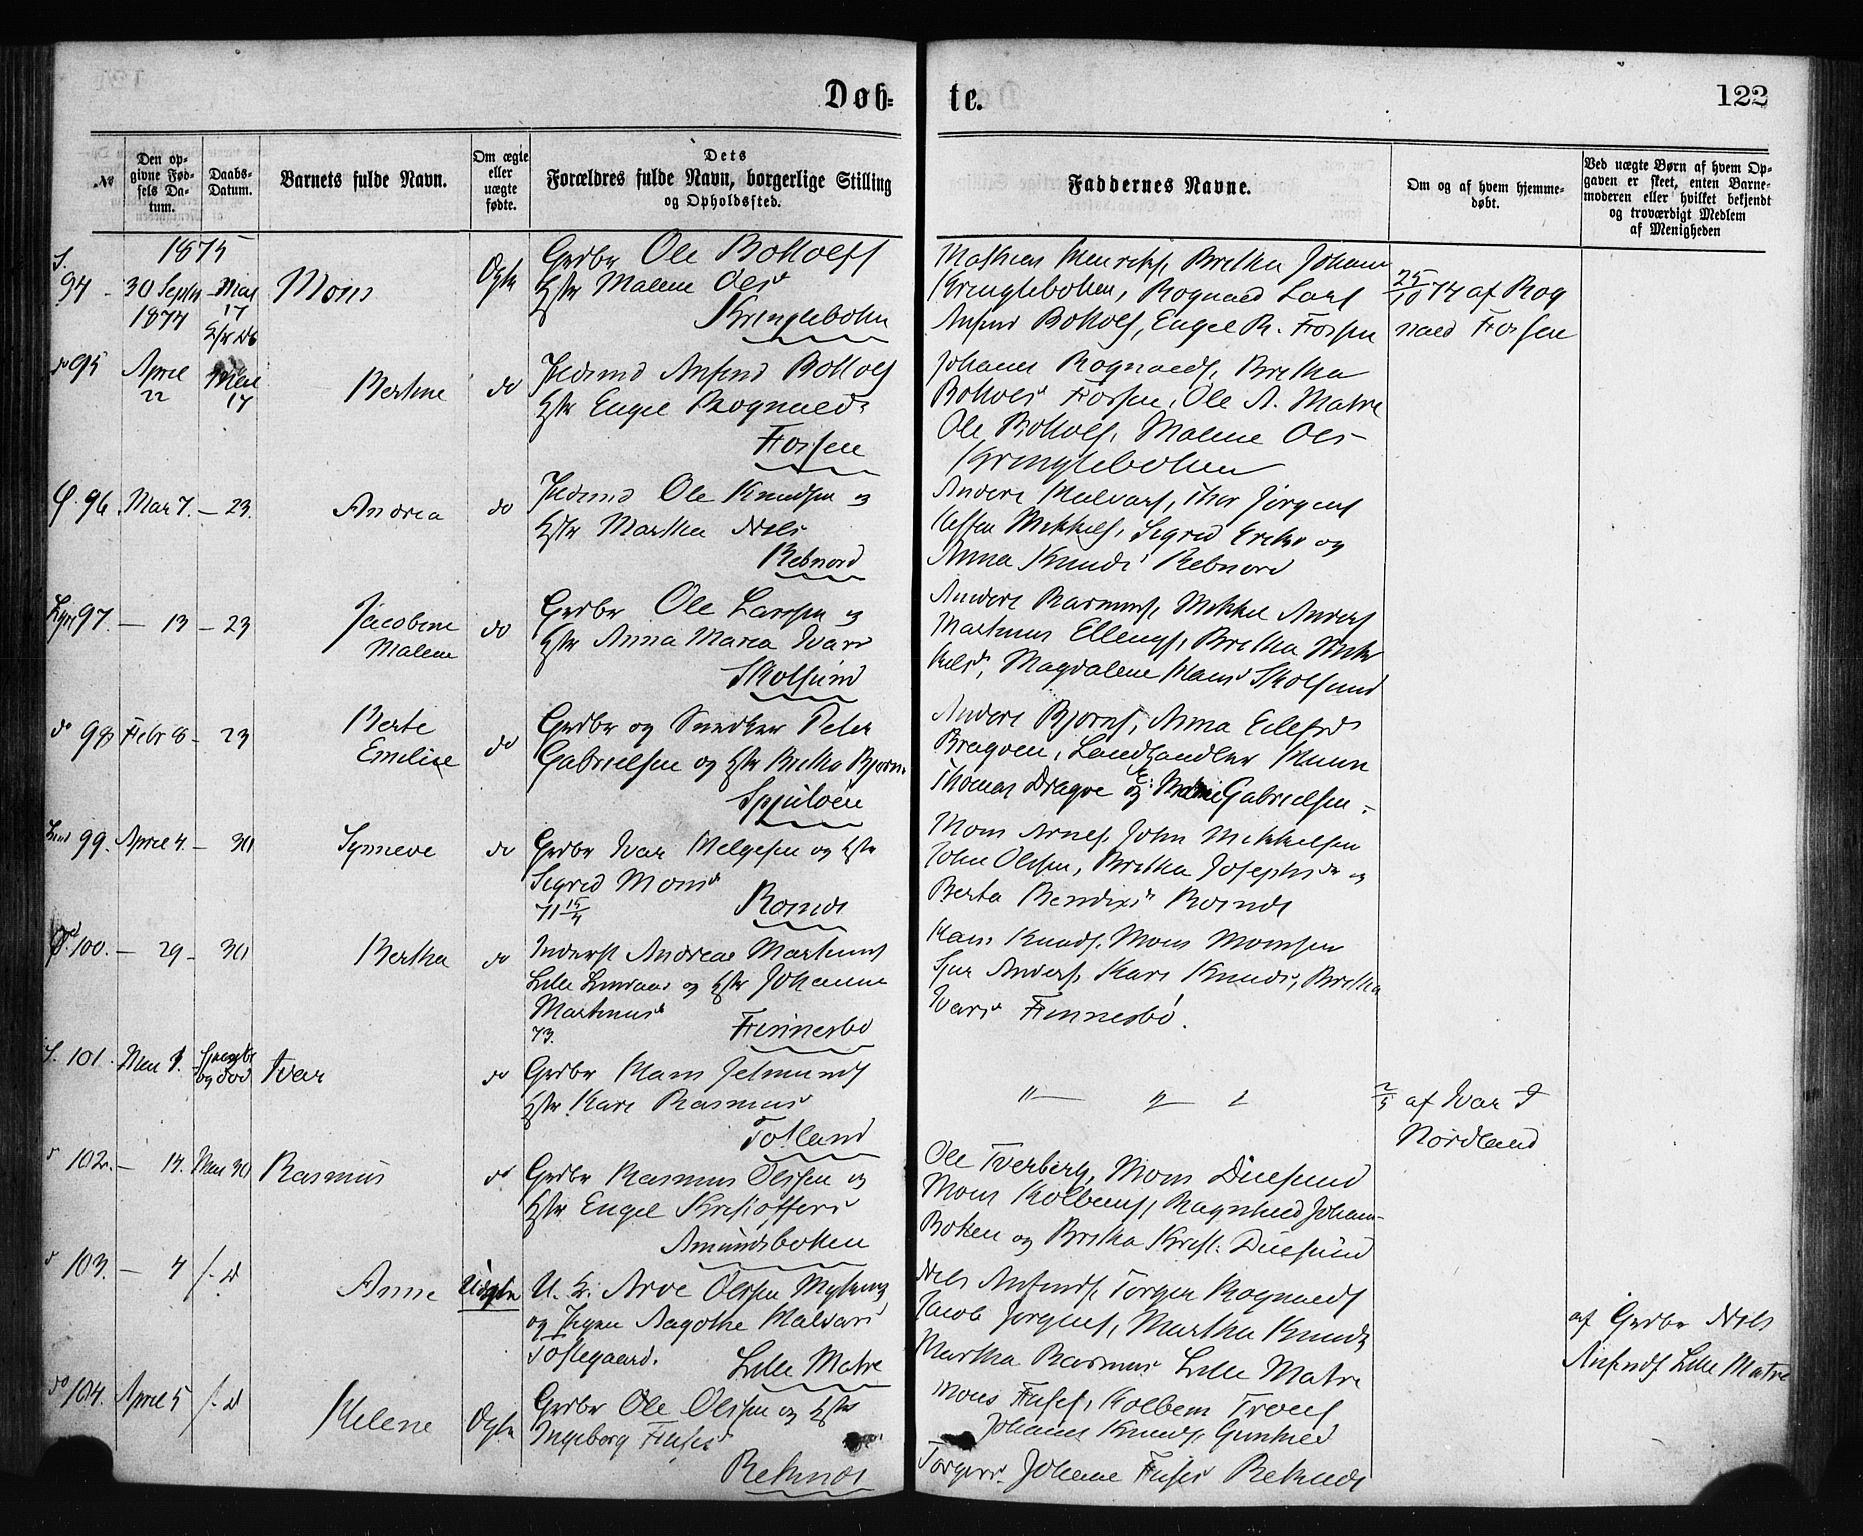 Døb=
te.
122
№
Den op-
givne Fød-
sels Da-
tum.
Daabs-
Datum.
Barnets fulde Navn.
Om ægte
eller
uægte
fødte.
Dets
Forældres fulde Navn, borgerlige Stilling
og Opholdssted.
Faddernes Navne.
Om og af hvem hjemme-
døbt.
Ved uægte Børn af hvem Op-
gaven er skeet, enten Barne-
moderen eller hvilket bekjendt
og troværdigt Medlem
af Menigheden
1875
94
30 Septr
1874
Mai
17
Mons
Ægte
Grdbr Ole Bottolfs
Hstr Malene Olesd
Kringleboten
Mathias Henriks, Britha Johans
Kringleboten, Rognald Lars
Anfind Bottolfs, Engel R. Fossen
25/10 74 af Rog
nald Fossen
do 95
April
22
Mai
17
Bertine
do
Anfind Bottolfs
Hstr Engel Rognalds
Fossen
Johannes Rognalds, Britha
Bottolfsd Fossen, Ole A. Matre
Ole Bottolfs, Malene Ols
Kringleboten
96
Mai 7.
23.
Andrea
do
Ole Knudsen og
Hstr Martha Nils
Rebnord
Anders Halvars, Thor Jørgens
Mikkels, Sigrid Eriks og
Anna Knuds Rebnord
97.
— 13
— 23
Jacobine
Malene
do
Grdbr Ole Larssen og
Hstr Anna Maria Ivars
Skolsund
Anders Rasmus, Mikkel Anders
Martinus Ellengs, Britha Mik
kels, Magdalene Hans Skolsund
do 98
Febr 8
23
Berte
Emilie
do
Grdbr og Snedker Peter
Gabrielsen og Hstr Britha Bjørn.
Spjutøen
Anders Bjørns, Anna Eilefsd
Dragøen, Landhandler
Thomas Dragøe og Gabrielsen
99.
April 4.
30
Synneve
do
Grdbr Ivar Helgesen og Hstr
Sigrid Monsd
71 15/4
Risnes
Mons Arnes, John Mikkelsen
John Olssen, Britha Josephsdr og
Berta Bendixs Risnes
100.
— 29
30
Bertha
do
Inderst Andreas Martinus
Lille Lindaas og Hstr Johanne
Martinusd
73.
Finnesbø
Hans Knuds, Mons Monssen
Sjur Anders, Kari Knuds, Britha
Ivars Finnesbø.
101.
Mai 1.
og død
Ivar
do
Grdbr Hans Jetmunds
Hstr Kari Rasmus
Totland
" " "
2/5 af Ivar J
Nordland
102.
— 14.
Mai 30
Rasmus
do
Grdbr Rasmus Olssen og
Hstr Engel Kristoffers
Amundsboten
Ole Tverberg, Mons Duesund
Mons Kolbens, Ragnhild Johans
Boten og Britha Krist. Duesund
103.
— 4
Anne
Uægte
U. K. Arve Olssen Myking
og Pigen Aagothe Halvars
Toftegaard.
Lille Matre
Nils Anfinds, Torger Rognalds
Jacob Jørgens, Martha Knuds
Martha Rasmus Lille Matre
af Grdbr Nils
Anfinds Lille Matre
do 104.
April 5
Helene
Ægte
Grdbr Ole Olssen og Hstr
Ingeborg
Reknes
Mons Kolben Trons
Johannes Knuds, Gunhild
Torgers, Johanne Reknes